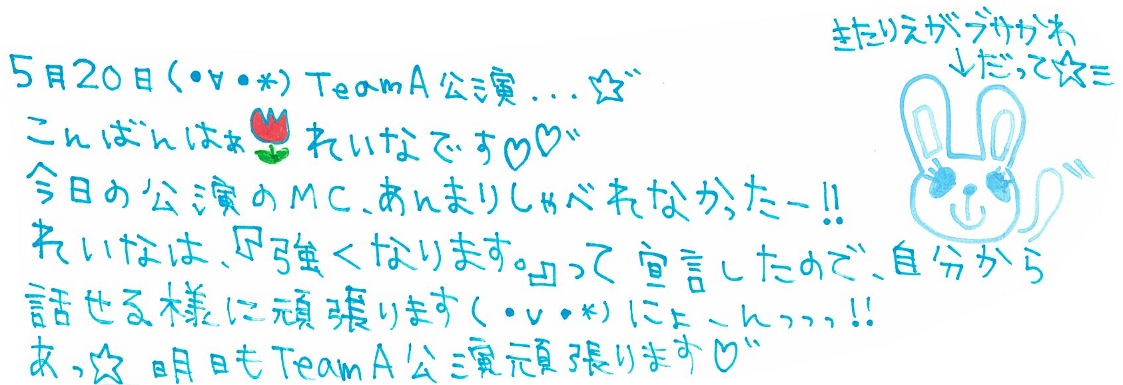 きたりえがブサかわ
↓だって☆ミ
5月20日(•∀•*) TeamA公演...☆゛
こんばんはぁ れいなです♡♡゛
今日の公演のMC、あんまりしゃべれなかったー!!
れいなは、『強くなります。』って宣言したので、自分から
話せる様に頑張ります(•v•*)にょーんっっっ!!
あっ☆ 明日もTeamA公演頑張ります♡゛